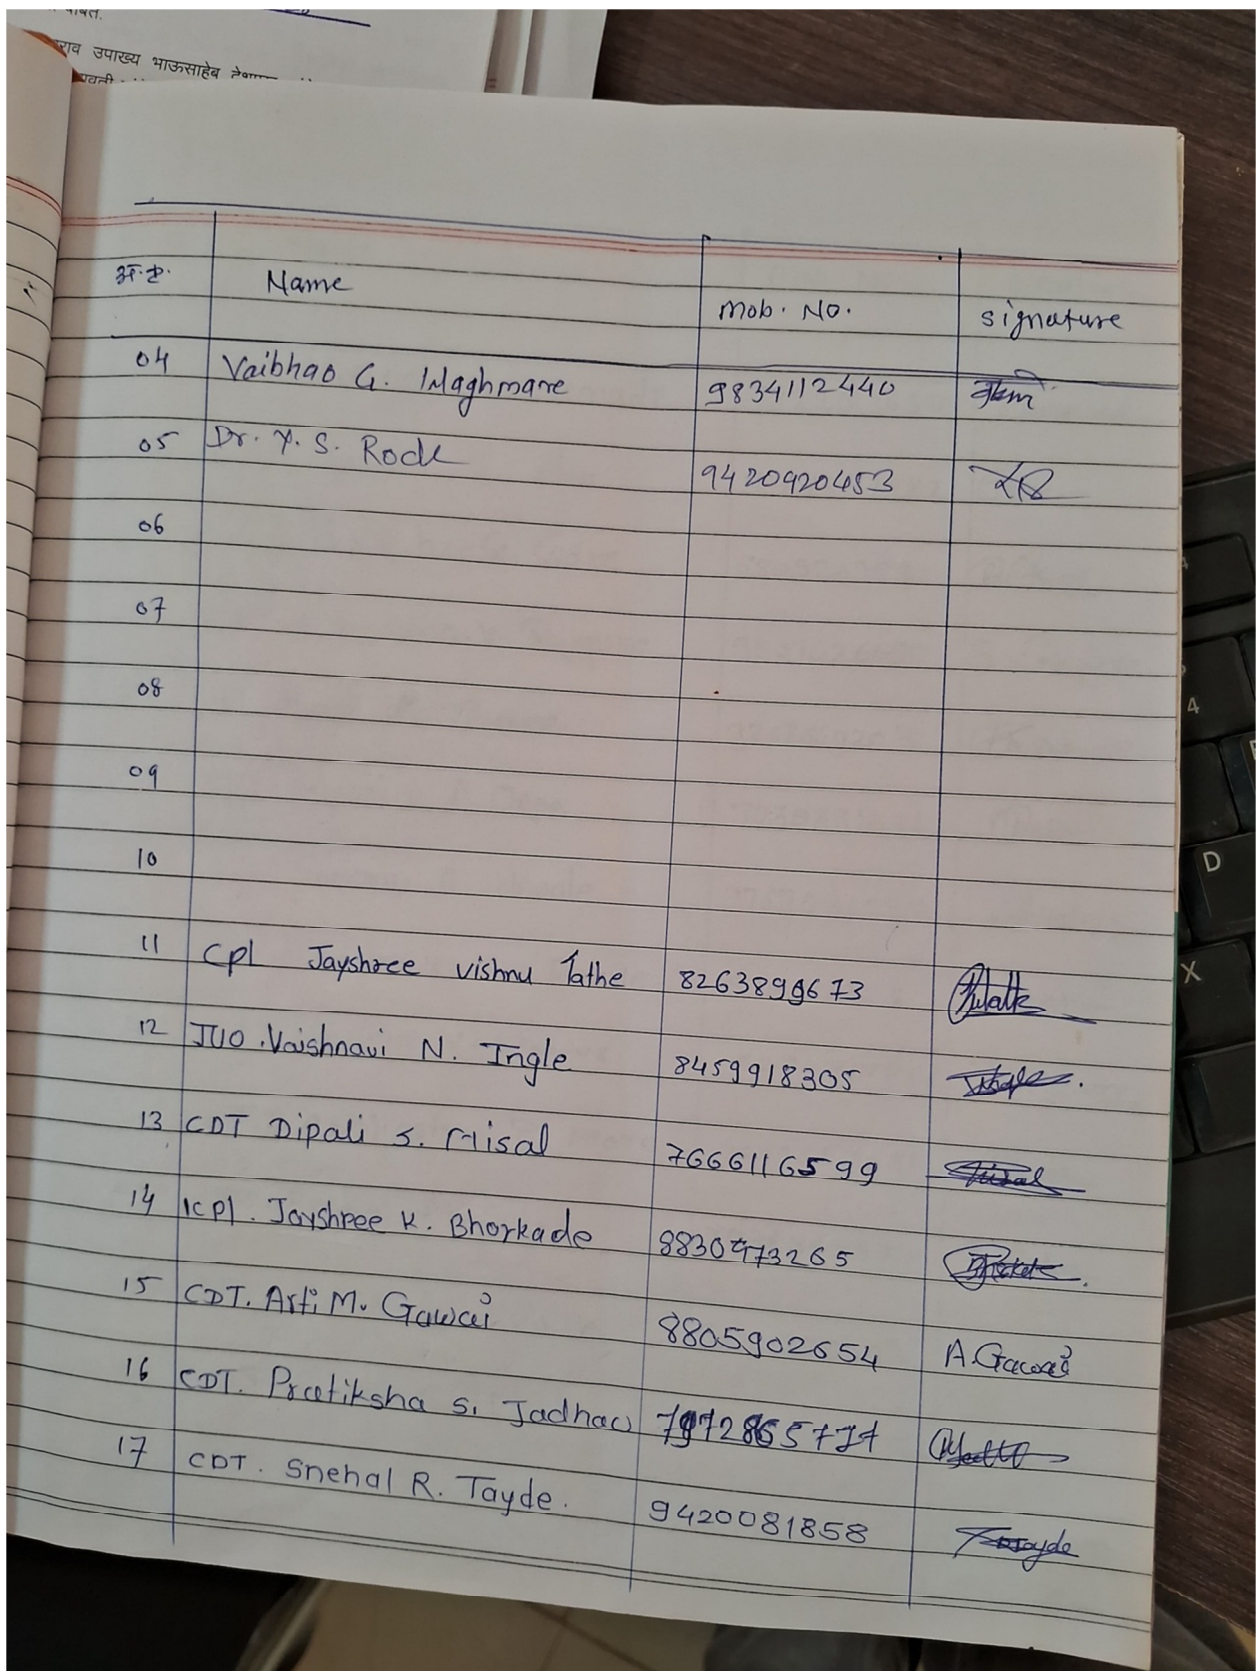 राव उपाख्य भाऊसाहेब
अ.क्र. Name Mob. No. Signature
04 Vaibhao G. Waghmare 9834112440
05 Dr. Y. S. Rode 9420920453
06
07
08
09
10
11 Cpl Jayshree Vishnu Tathe 8263899673
12 JUO. Vaishnavi N. Ingle 8459918305
13 CDT Dipali S. Misal 7666116599
14 lcpl. Jayshree K. Bhorkade 8830473265
15 CDT. Arti M. Gawai 8805902654 A.Gawai
16 CDT. Pratiksha S. Jadhao
17 CDT. Snehal R. Tayde. 9420081858
4
D
X